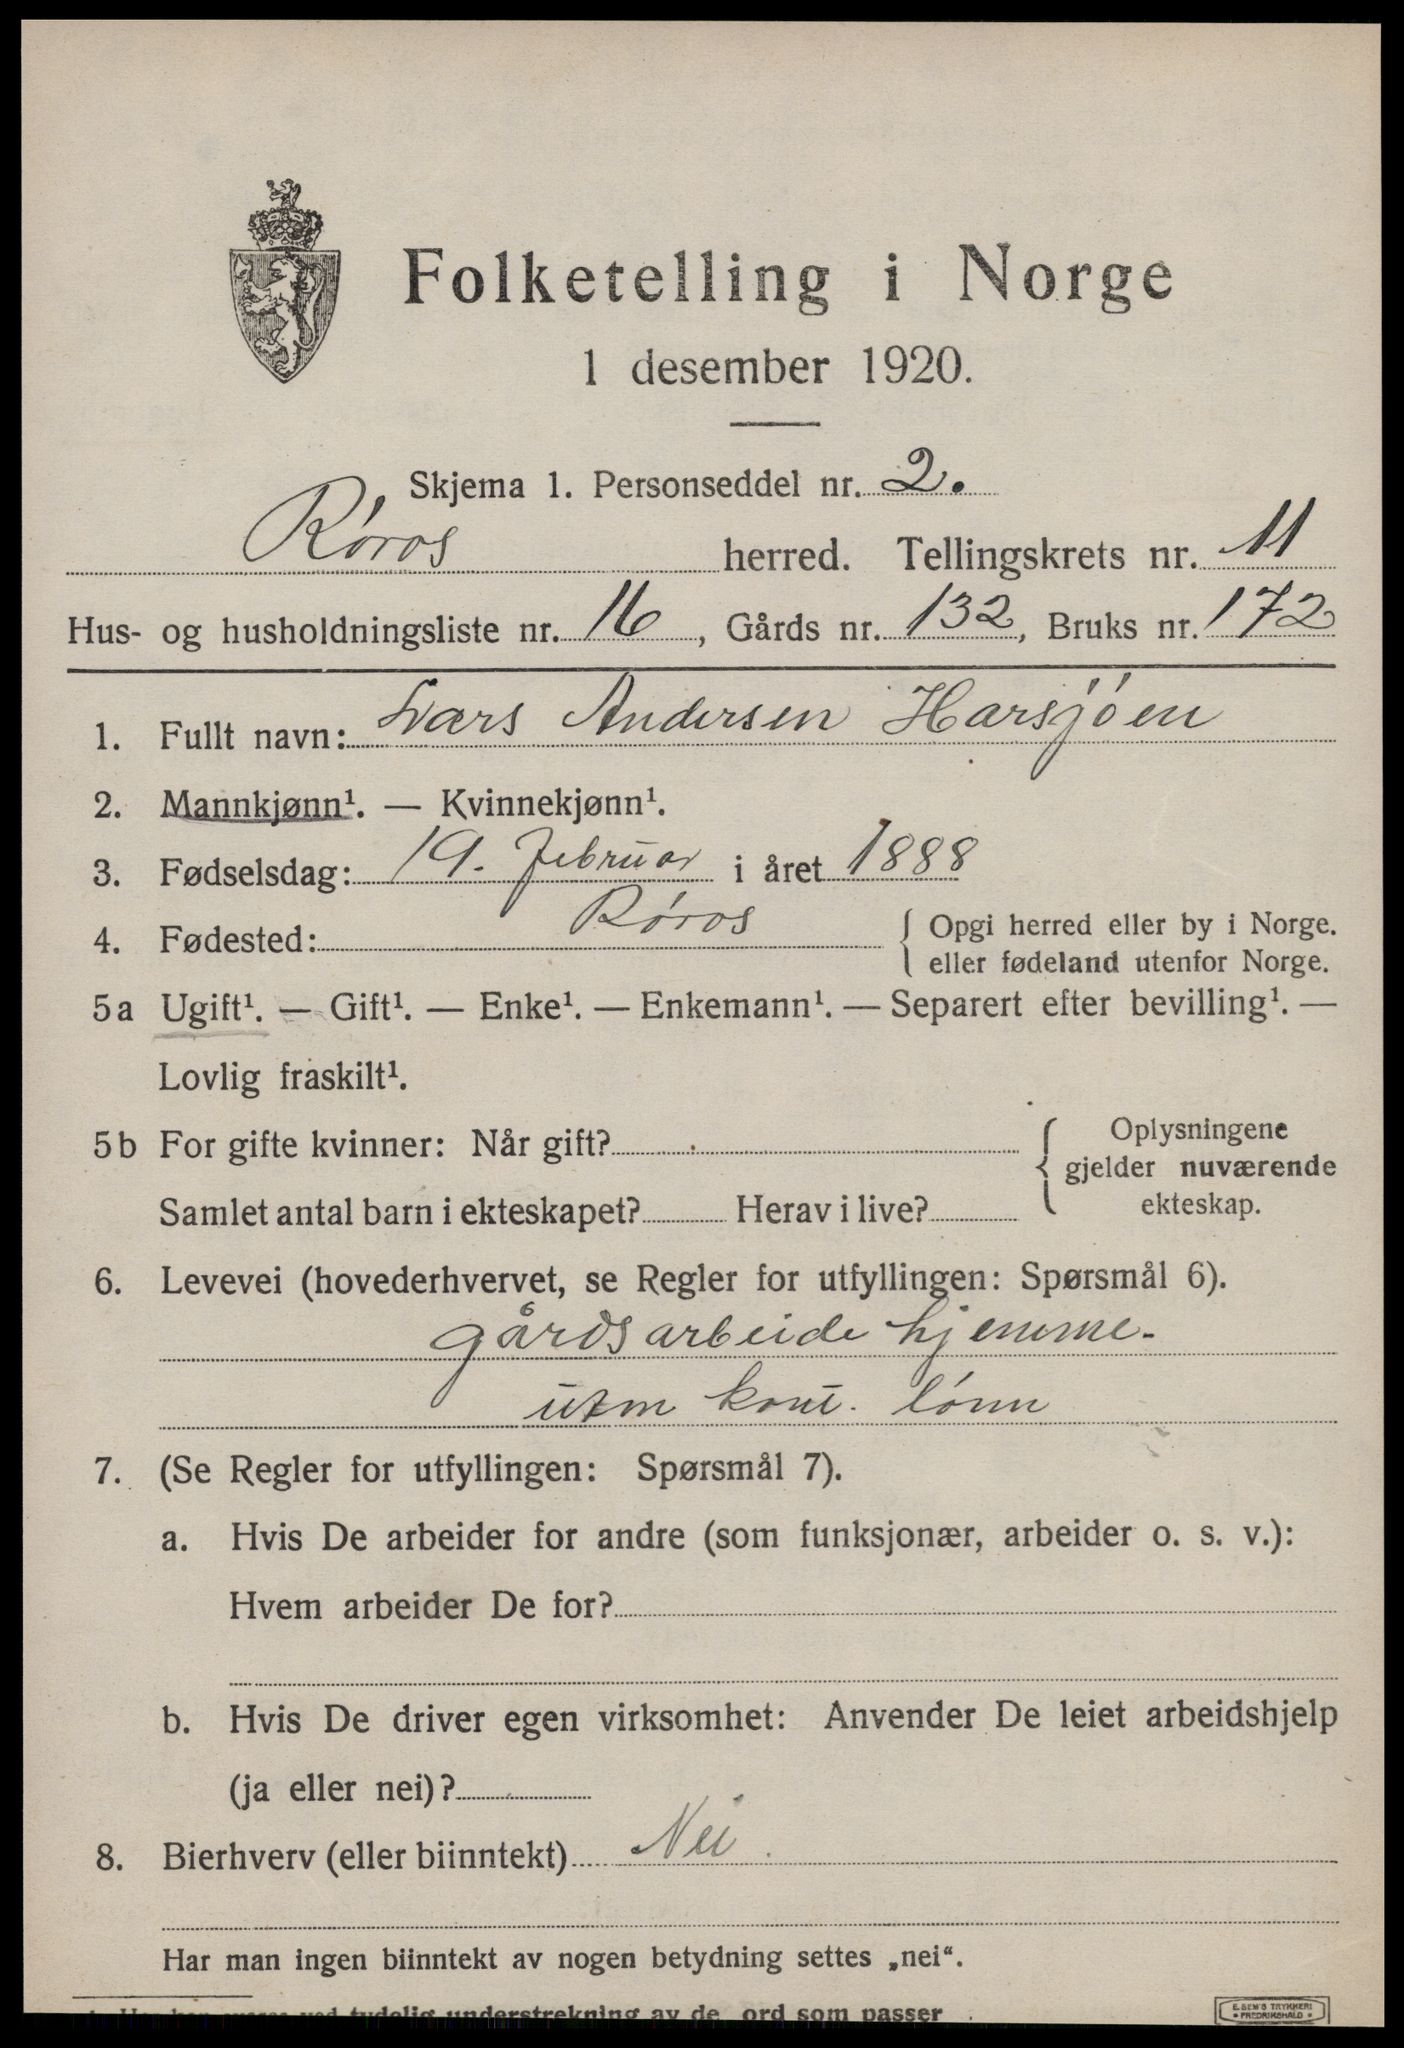 Folketelling i Norge
1 desember 1920.
Skjema 1. Personseddel nr. 2.
Røros herred. Tellingskrets nr. 11
Hus- og husholdningsliste nr. 16, Gårds nr. 132, Bruks nr. 172
1. Fullt navn: Lars Andersen Harsjøen
2. Mannkjønn¹. — Kvinnekjønn¹.
3. Fødselsdag: 19. februar i året 1888
4. Fødested: Røros { Opgi herred eller by i Norge.
eller fødeland utenfor Norge.
5a Ugift¹. — Gift¹. — Enke¹. — Enkemann¹. — Separert efter bevilling¹. —
Lovlig fraskilt¹.
5b For gifte kvinner: Når gift? { Oplysningene
gjelder nuværende
Samlet antal barn i ekteskapet? Herav i live? ekteskap.
6. Levevei (hovederhvervet, se Regler for utfyllingen: Spørsmål 6).
gårdsarbeide hjemme.
uten kont. lønn
7. (Se Regler for utfyllingen: Spørsmål 7).
a. Hvis De arbeider for andre (som funksjonær, arbeider o. s. v.):
Hvem arbeider De for?
b. Hvis De driver egen virksomhet: Anvender De leiet arbeidshjelp
(ja eller nei)?
8. Bierhverv (eller biinntekt) Nei.
Har man ingen biinntekt av nogen betydning settes „nei“.
tydelig understrekning av de ord som passer
E. SEM'S TRYKKERI
FREDRIKSHALD